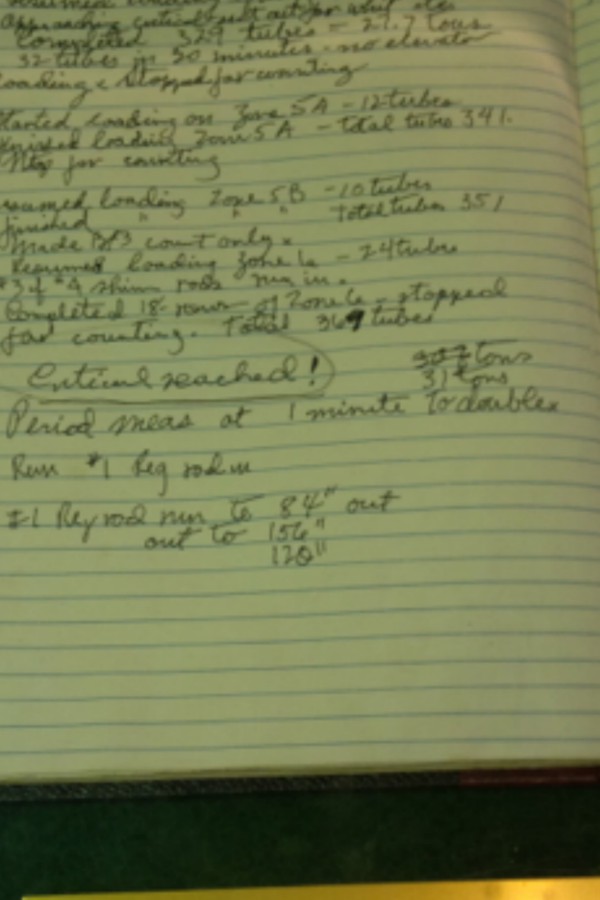 Approaching critical
Completed 329 tubes - 27.7 tons
32 tubes in 50 minutes - no elevator
loading & stopped for counting
Started loading on Zone 5A - 12 tubes
finished loading Zone 5A - total tubes 341.
for counting
resumed loading Zone 5B - 10 tubes
finished " " " total tubes 351
Made BF3 count only.
Resumed loading Zone 6 - 24 tubes
#3 & #4 shim rods run in.
Completed 18 rows of Zone 6 - stopped
for counting. Total 369 tubes
Critical reached! 30.7 tons
31 tons
Period meas at 1 minute to double
Run #1 Reg rod in
#1 Reg rod run to 84" out
out to 156"
120"